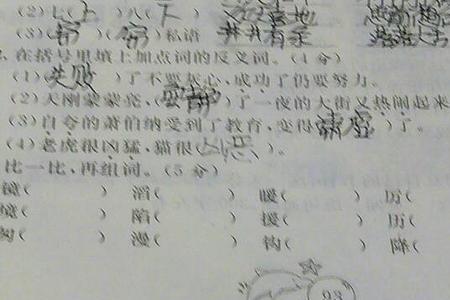 (2)七(上)八(下)
(3)(窃)(窃)私语 井井有条
在括号里填上加点词的反义词。(4分)
(1)(失败)了不要灰心,成功了仍要努力。
(2)天刚蒙蒙亮,(安静)了一夜的大街又热闹起来
(3)自夸的萧伯纳受到了教育,变得(谦虚)了。
(4)老虎很凶猛,猫很( )。
比一比,再组词。(5分)
镜( ) 滔( ) 暖( ) 厉( )
境( ) 陷( ) 援( ) 历( )
漫( ) 钩( ) 降(
93